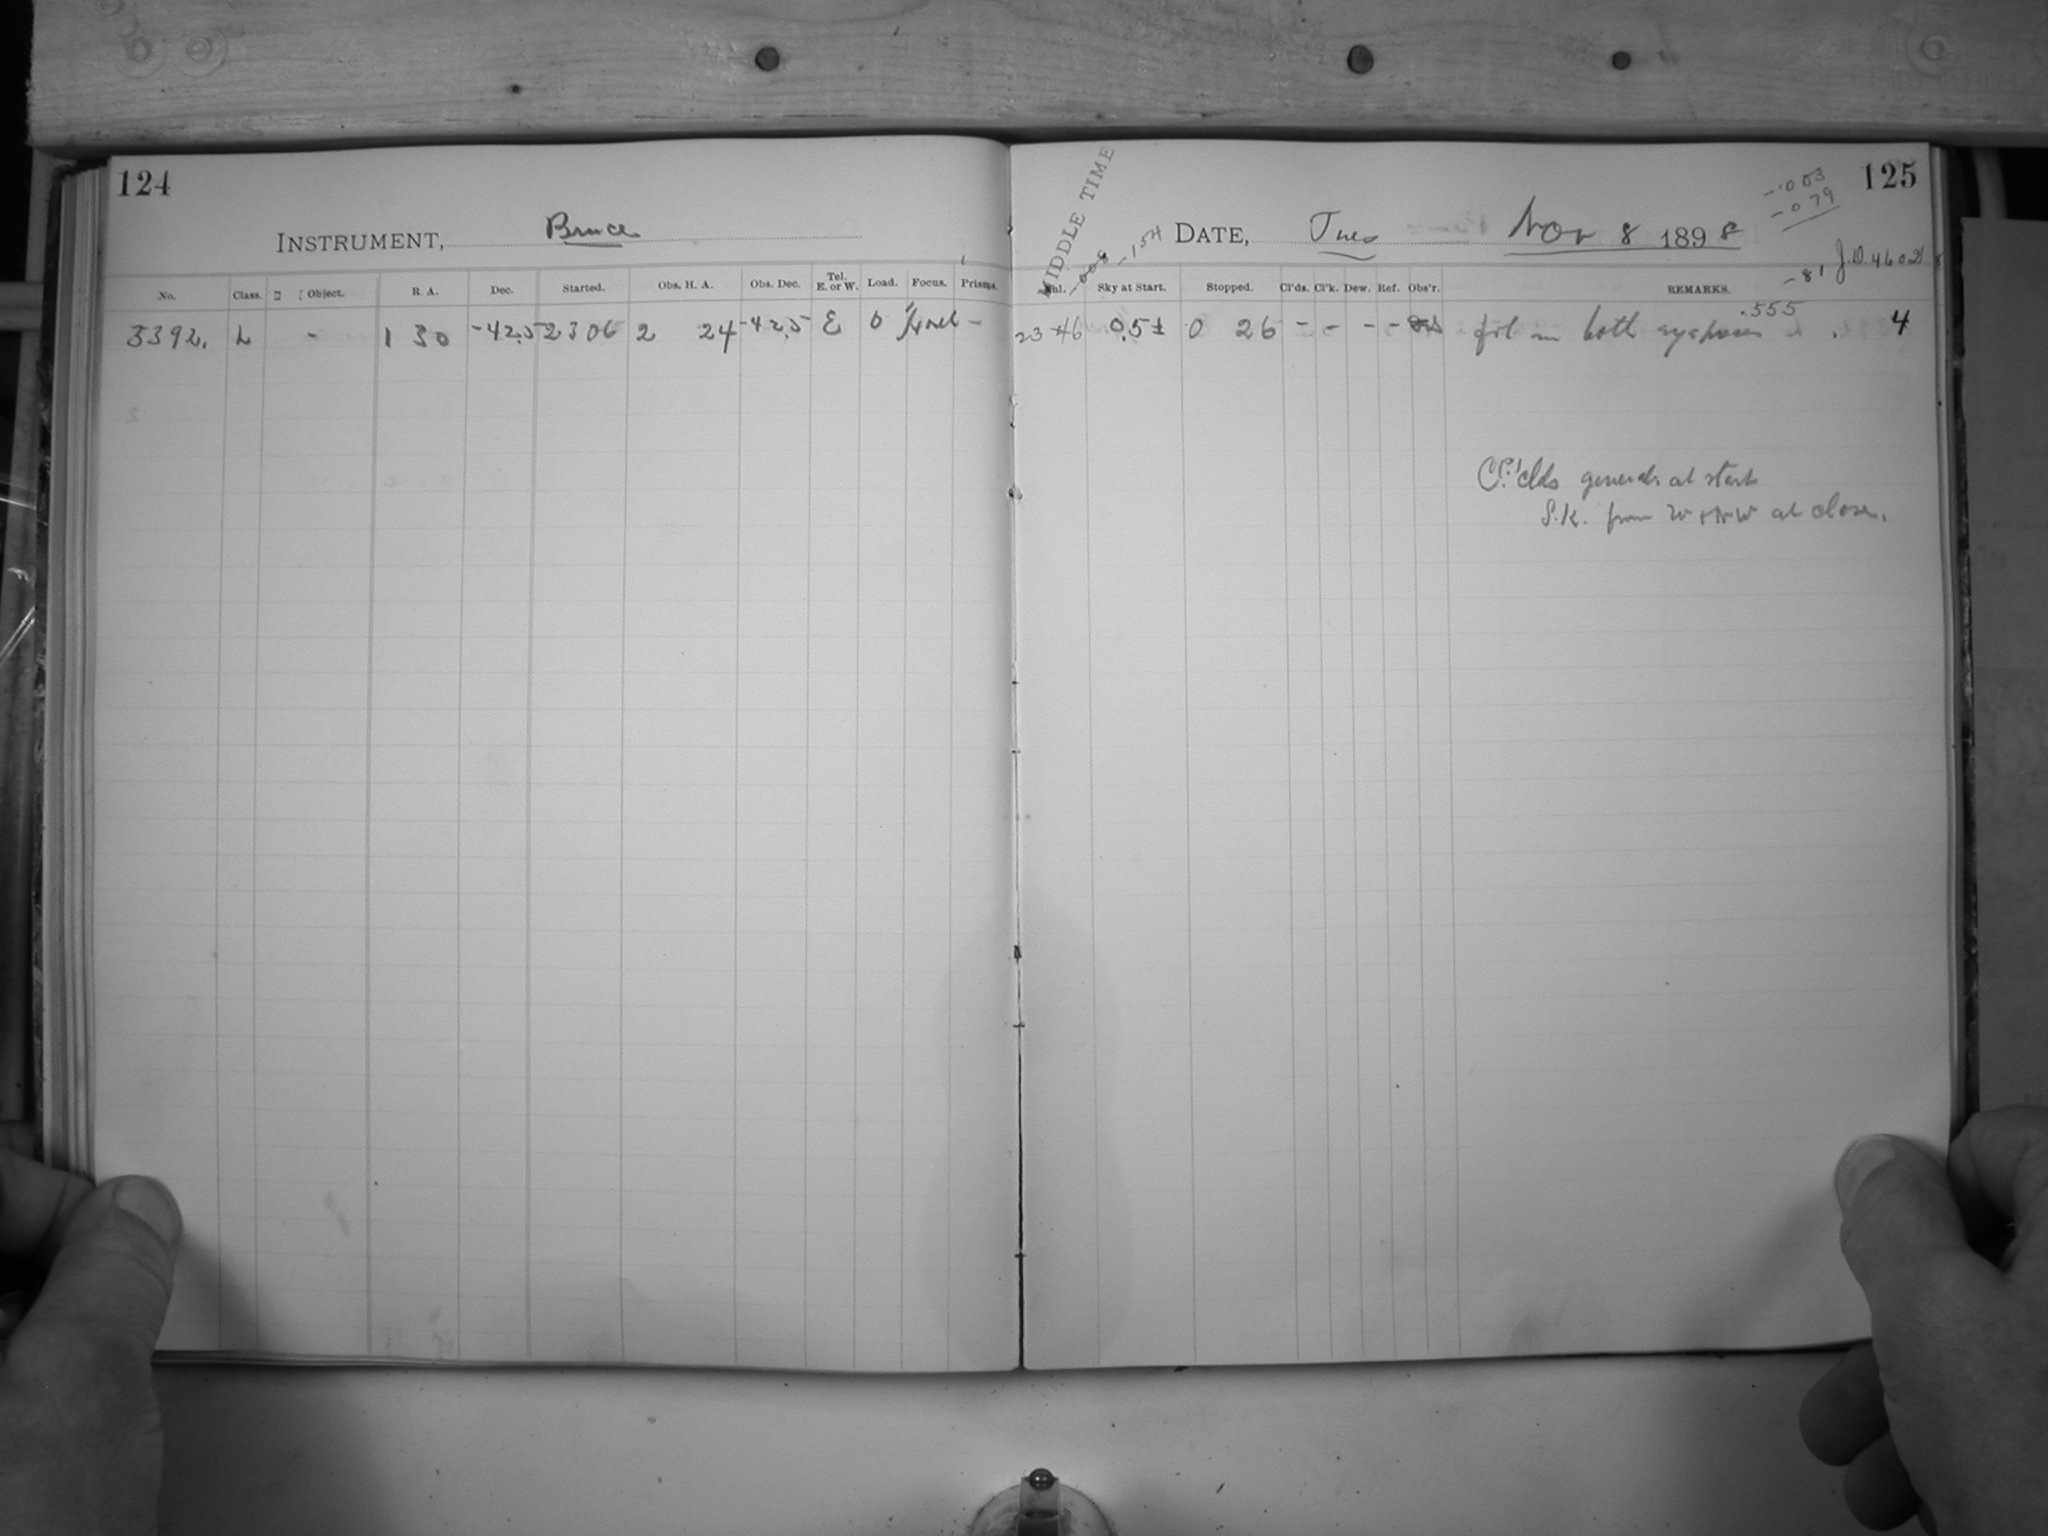 124
INSTRUMENT, Bruce
No. Class. Object. R. A. Dec. Started. Obs. H. A. Obs. Dec. Tel. E. or W. Load. Focus. Prisms.
3392. L - 1 30 -42.5 23 06 2 24 -42.5 E 0 -
125
-.003
-.079
MIDDLE TIME
DATE, Tues Nov 8 1898
-.008 -.154
-81 J.D. 4602
Sky at Start. Stopped. Cl'ds. Cl'k. Dew. Ref. Obs'r. REMARKS.
.555
23 46 0.5± 0 26 - - - - both 4
clds at start
S.K. from W + NW at close.